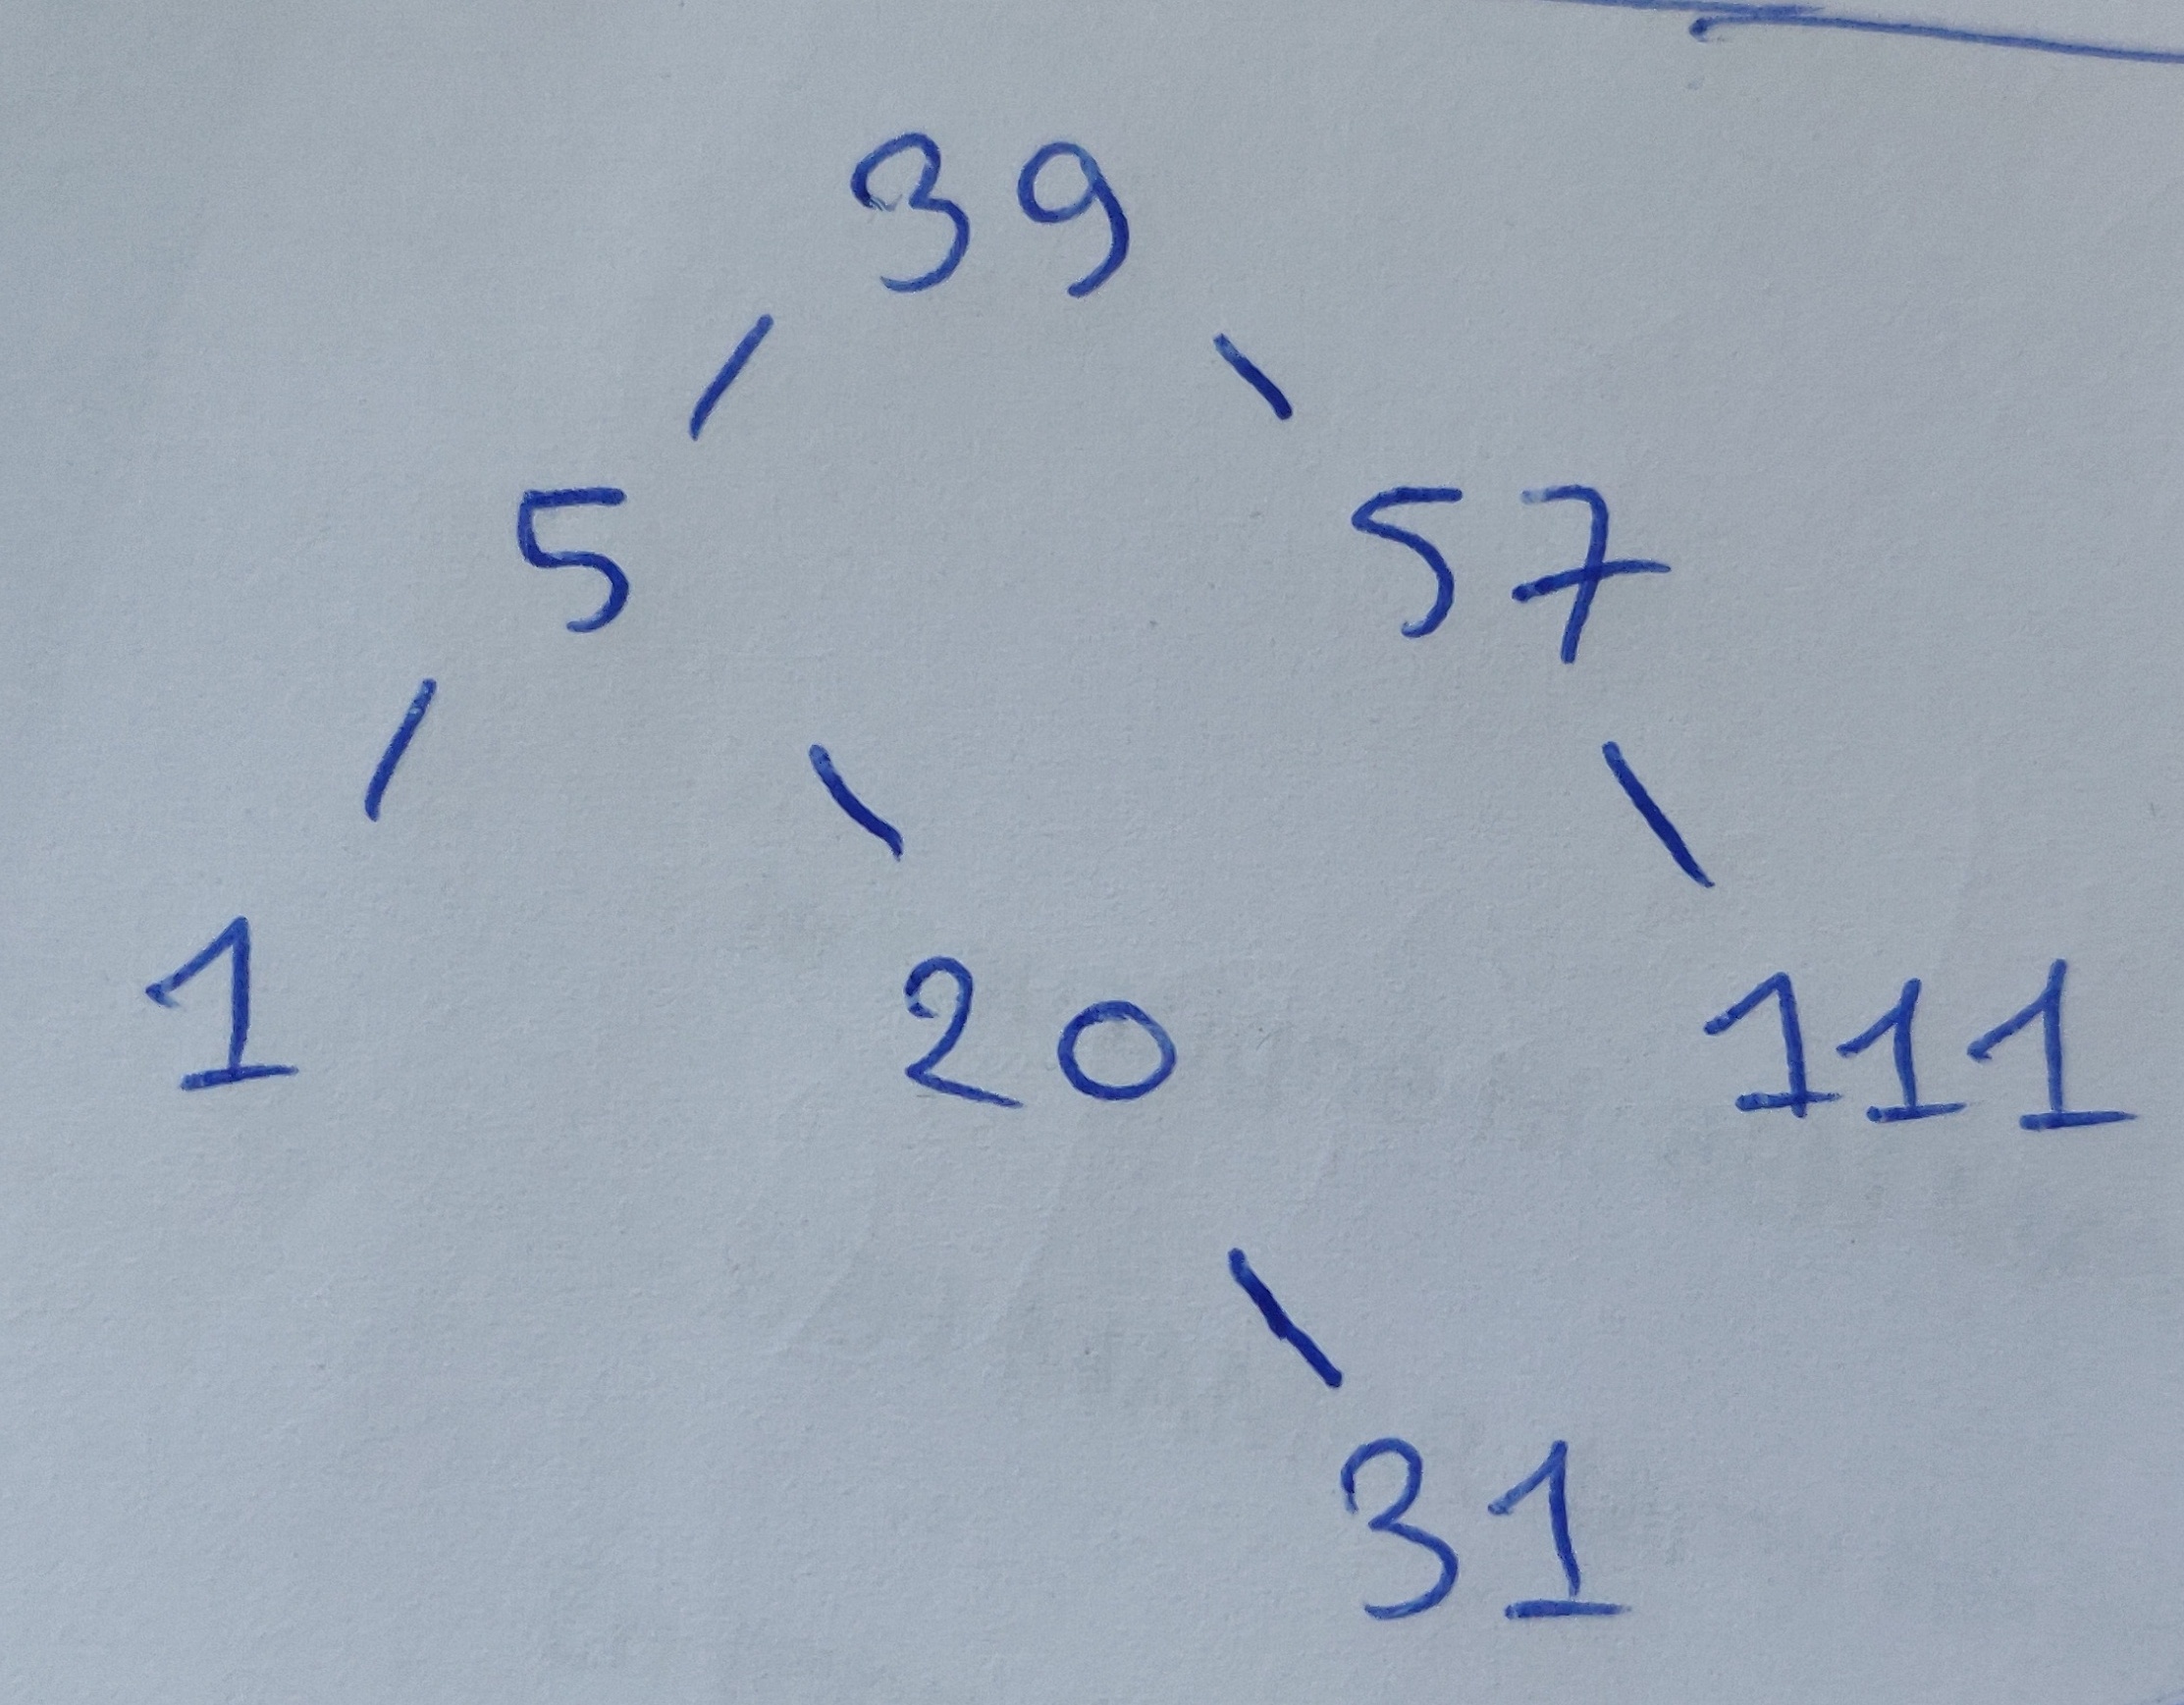 39
5 57
1 20 111
31